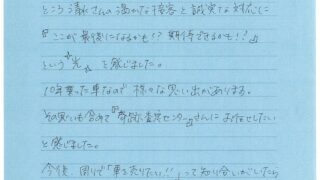 ところ 清水さんの温かな接客と誠実な対応に
『ここが最後になるかも!? 期待させるかも!?』
という"光"を感じました。
10年乗った車なので 様々な思い出があります。
その思いも含めて『 査定センター』さんにお任せしたい
と感じました。
今後、周りで「車を売りたい!!」って知り合いがしたら